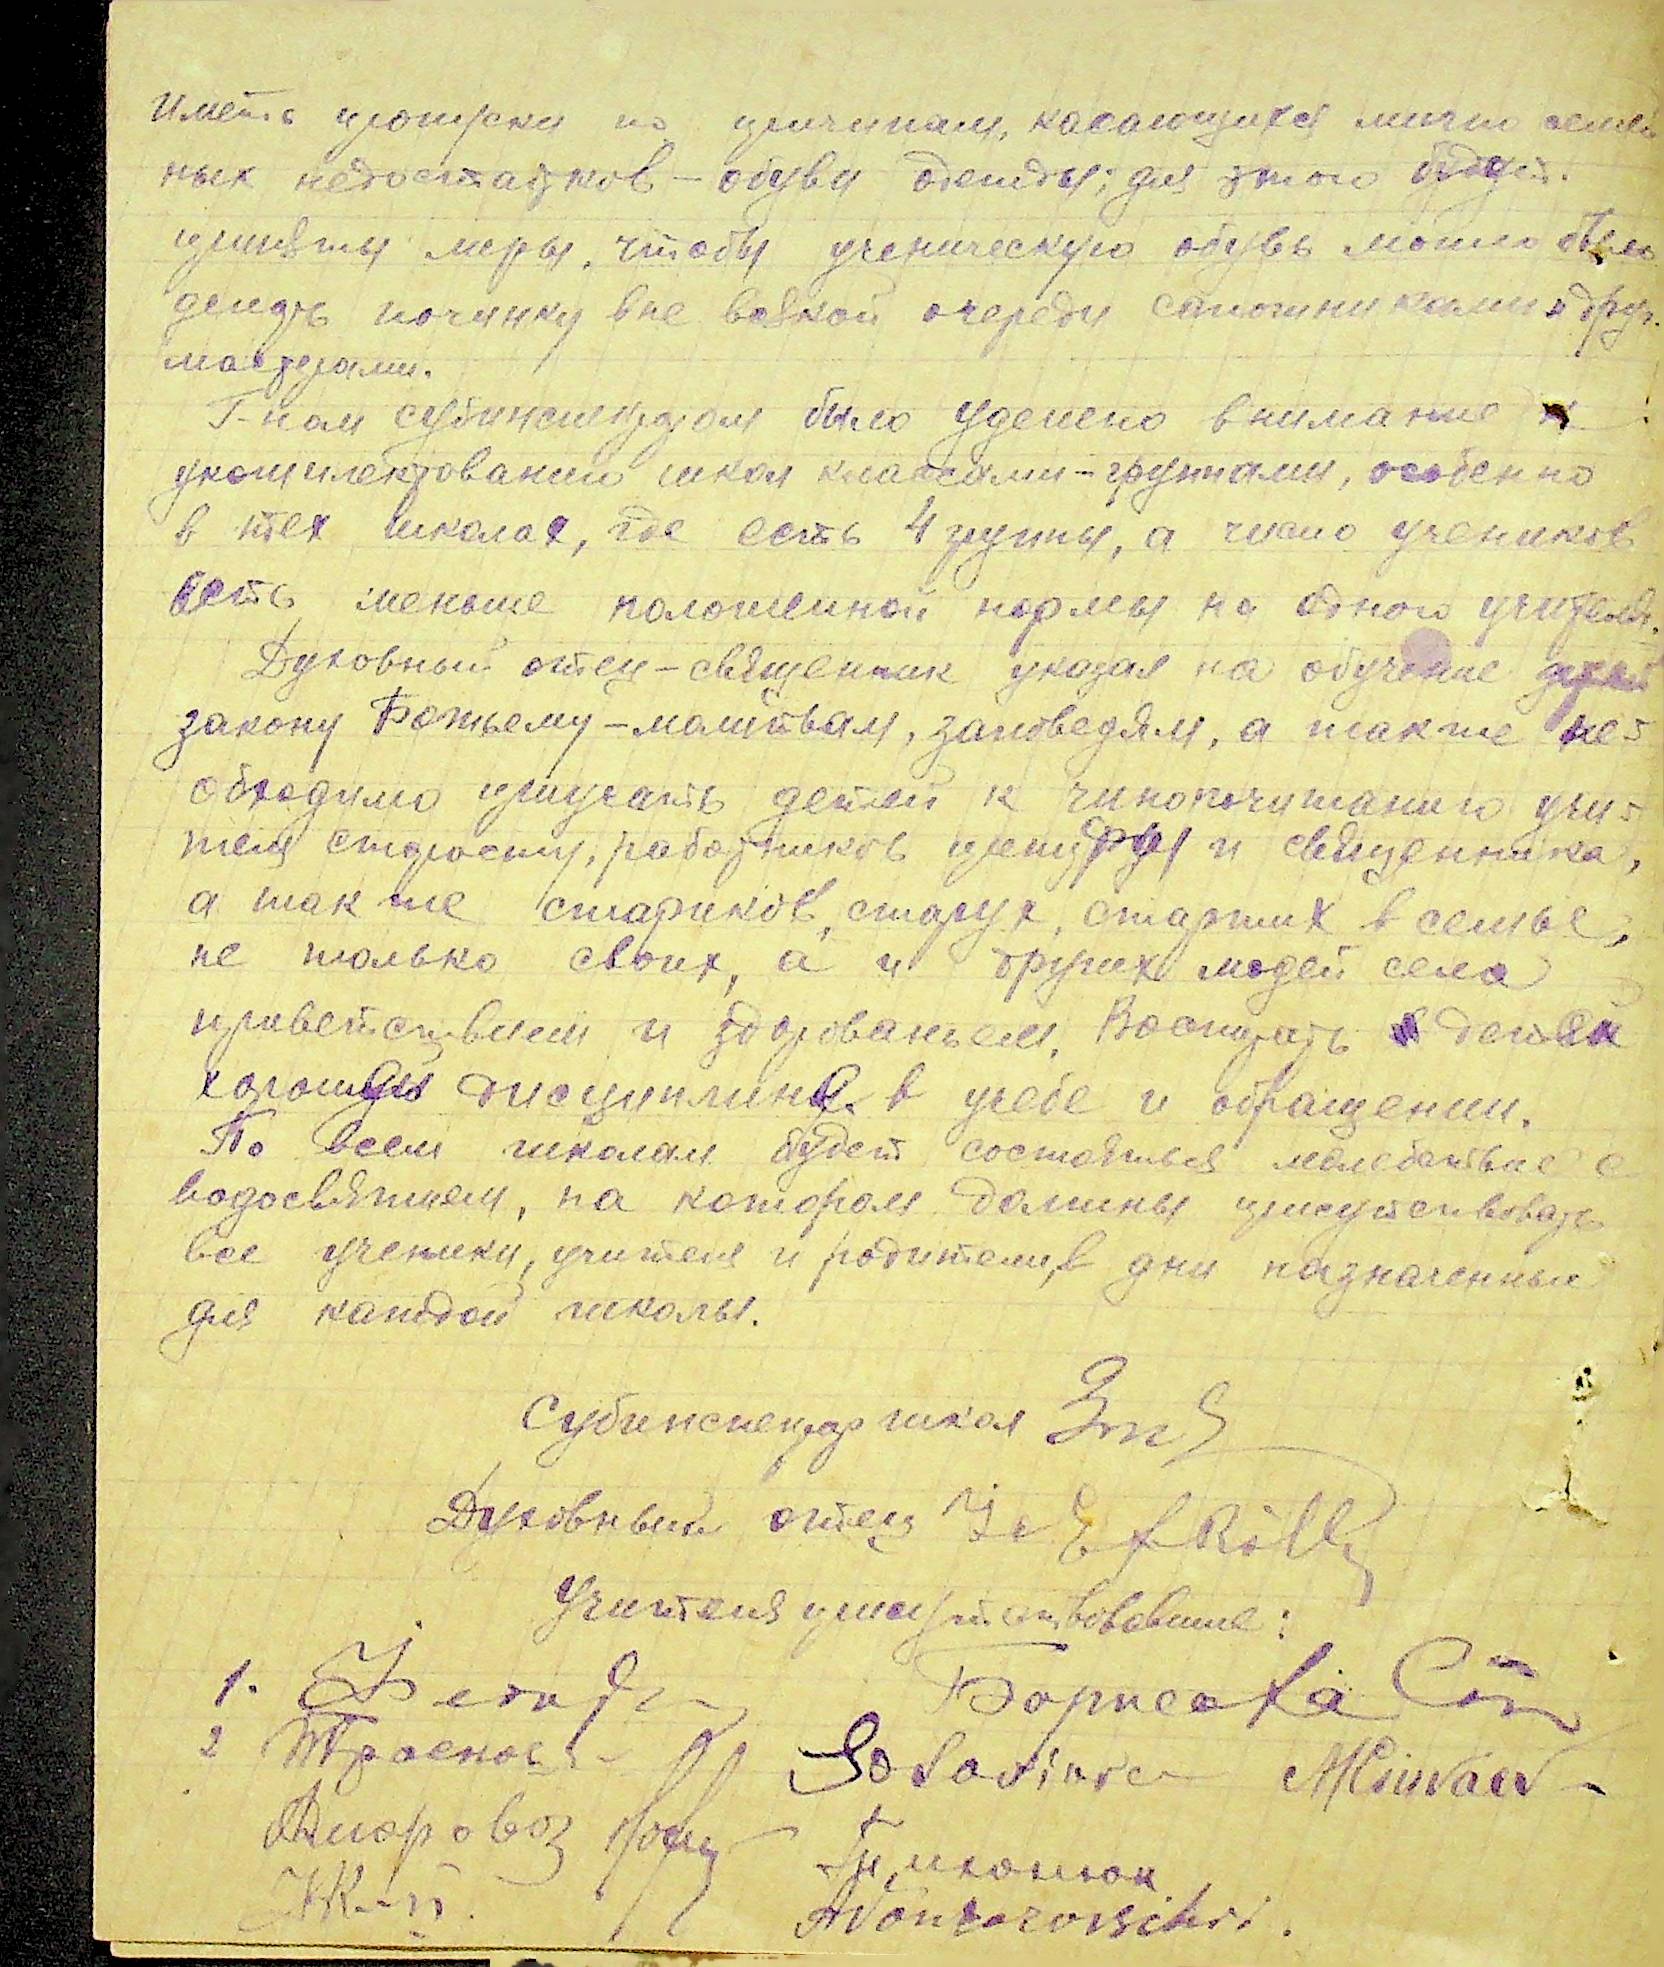 Иметь пропуски по причинам, касающихся лично семей
ных недостатков – обуви одежды; для этого будут
приняты меры, чтобы ученическую обувь можно было
починку вне всякой очереди сапожниками и друг.
мастерами.
Г-ном субинспектором было уделено внимание к
укомплектованию школ классами-группами, особенно
в тех школах, где есть 4 группы, а число учеников
есть меньше положенной нормы на одного учителя.
Духовный отец – священник указал на обучение детей
закону Божьему – молитвам, заповедям, а также не-
обходимо приучать детей к чинопочитанию учи-
теля старосты, работников примэрии и священника,
а так же стариков, старух, старших в семье,
не только своих, а и других людей села
приветствием и здорованьем. Воспитать детей
дисциплине в учебе и обращении.
По всем школам будет состояться молебствие с
водосвятием, на котором должны присутствовать
все ученики, учителя и родители, в дни назначенные
для каждой школы.
Субинспектор школ
Духовный отец
Учителя присутствовавшие:
1.
Борисова
2